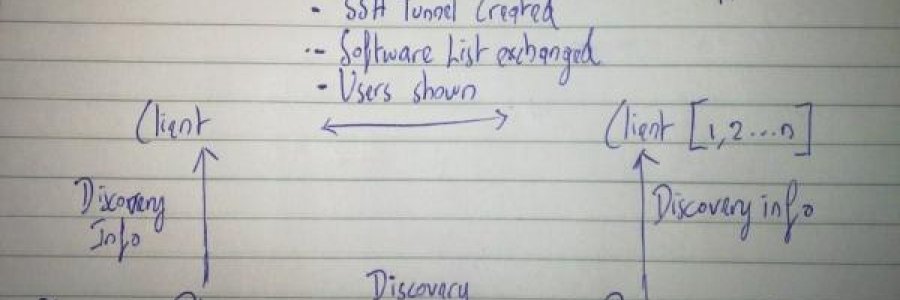 - SSH Tunnel Created
- Software List exchanged
- Users shown
Client
Client [1,2...n]
Discovery
Info
Discovery info
Discovery